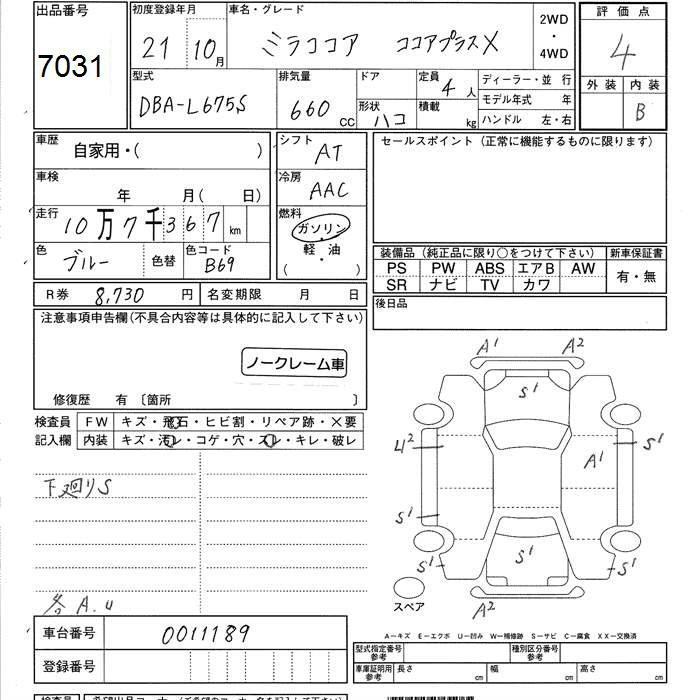 出品番号
7031
初度登録年月
21 10月
車名・グレード
ミラココア ココアプラスX
2WD
・
4WD
評価点
4
外装 内装
B
型式
DBA-L675S
排気量
660 CC
ドア
形状
ハコ
定員
4人
積載
kg
ディーラー・並 行
モデル年式 年
ハンドル 左・右
車歴
自家用・( )
車検
年 月( 日)
走行
10万7千367 km
色
ブルー
色替
色コード
B69
シフト
AT
冷房
AAC
燃料
ガソリン
・
軽・油
( )
セールスポイント (正常に機能するものに限ります)
装備品 (純正品に限り○をつけて下さい)
PS PW ABS エアB AW
SR ナビ TV カワ
新車保証書
有・無
後日品
R券 8,730 円
名変期限 月 日
注意事項申告欄(不具合内容等は具体的に記入して下さい)
ノークレーム車
修復歴 有 〔箇所 〕
検査員
記入欄
FW キズ・飛石・ヒビ割・リペア跡・×要
内装 キズ・汚レ・コゲ・穴・スレ・キレ・破レ
下廻りS
各A.U
A1 A2
S1
42
S1
A1
S1
S1
S1
S1
A2
スペア
車台番号
0011189
登録番号
A−キズ E−エクボ U−凹み W−補修跡 S−サビ C−腐食 XX−交換済
型式指定番号
参考
種別区分番号
参考
車庫証明用
参考
長さ cm
幅 cm
高さ cm